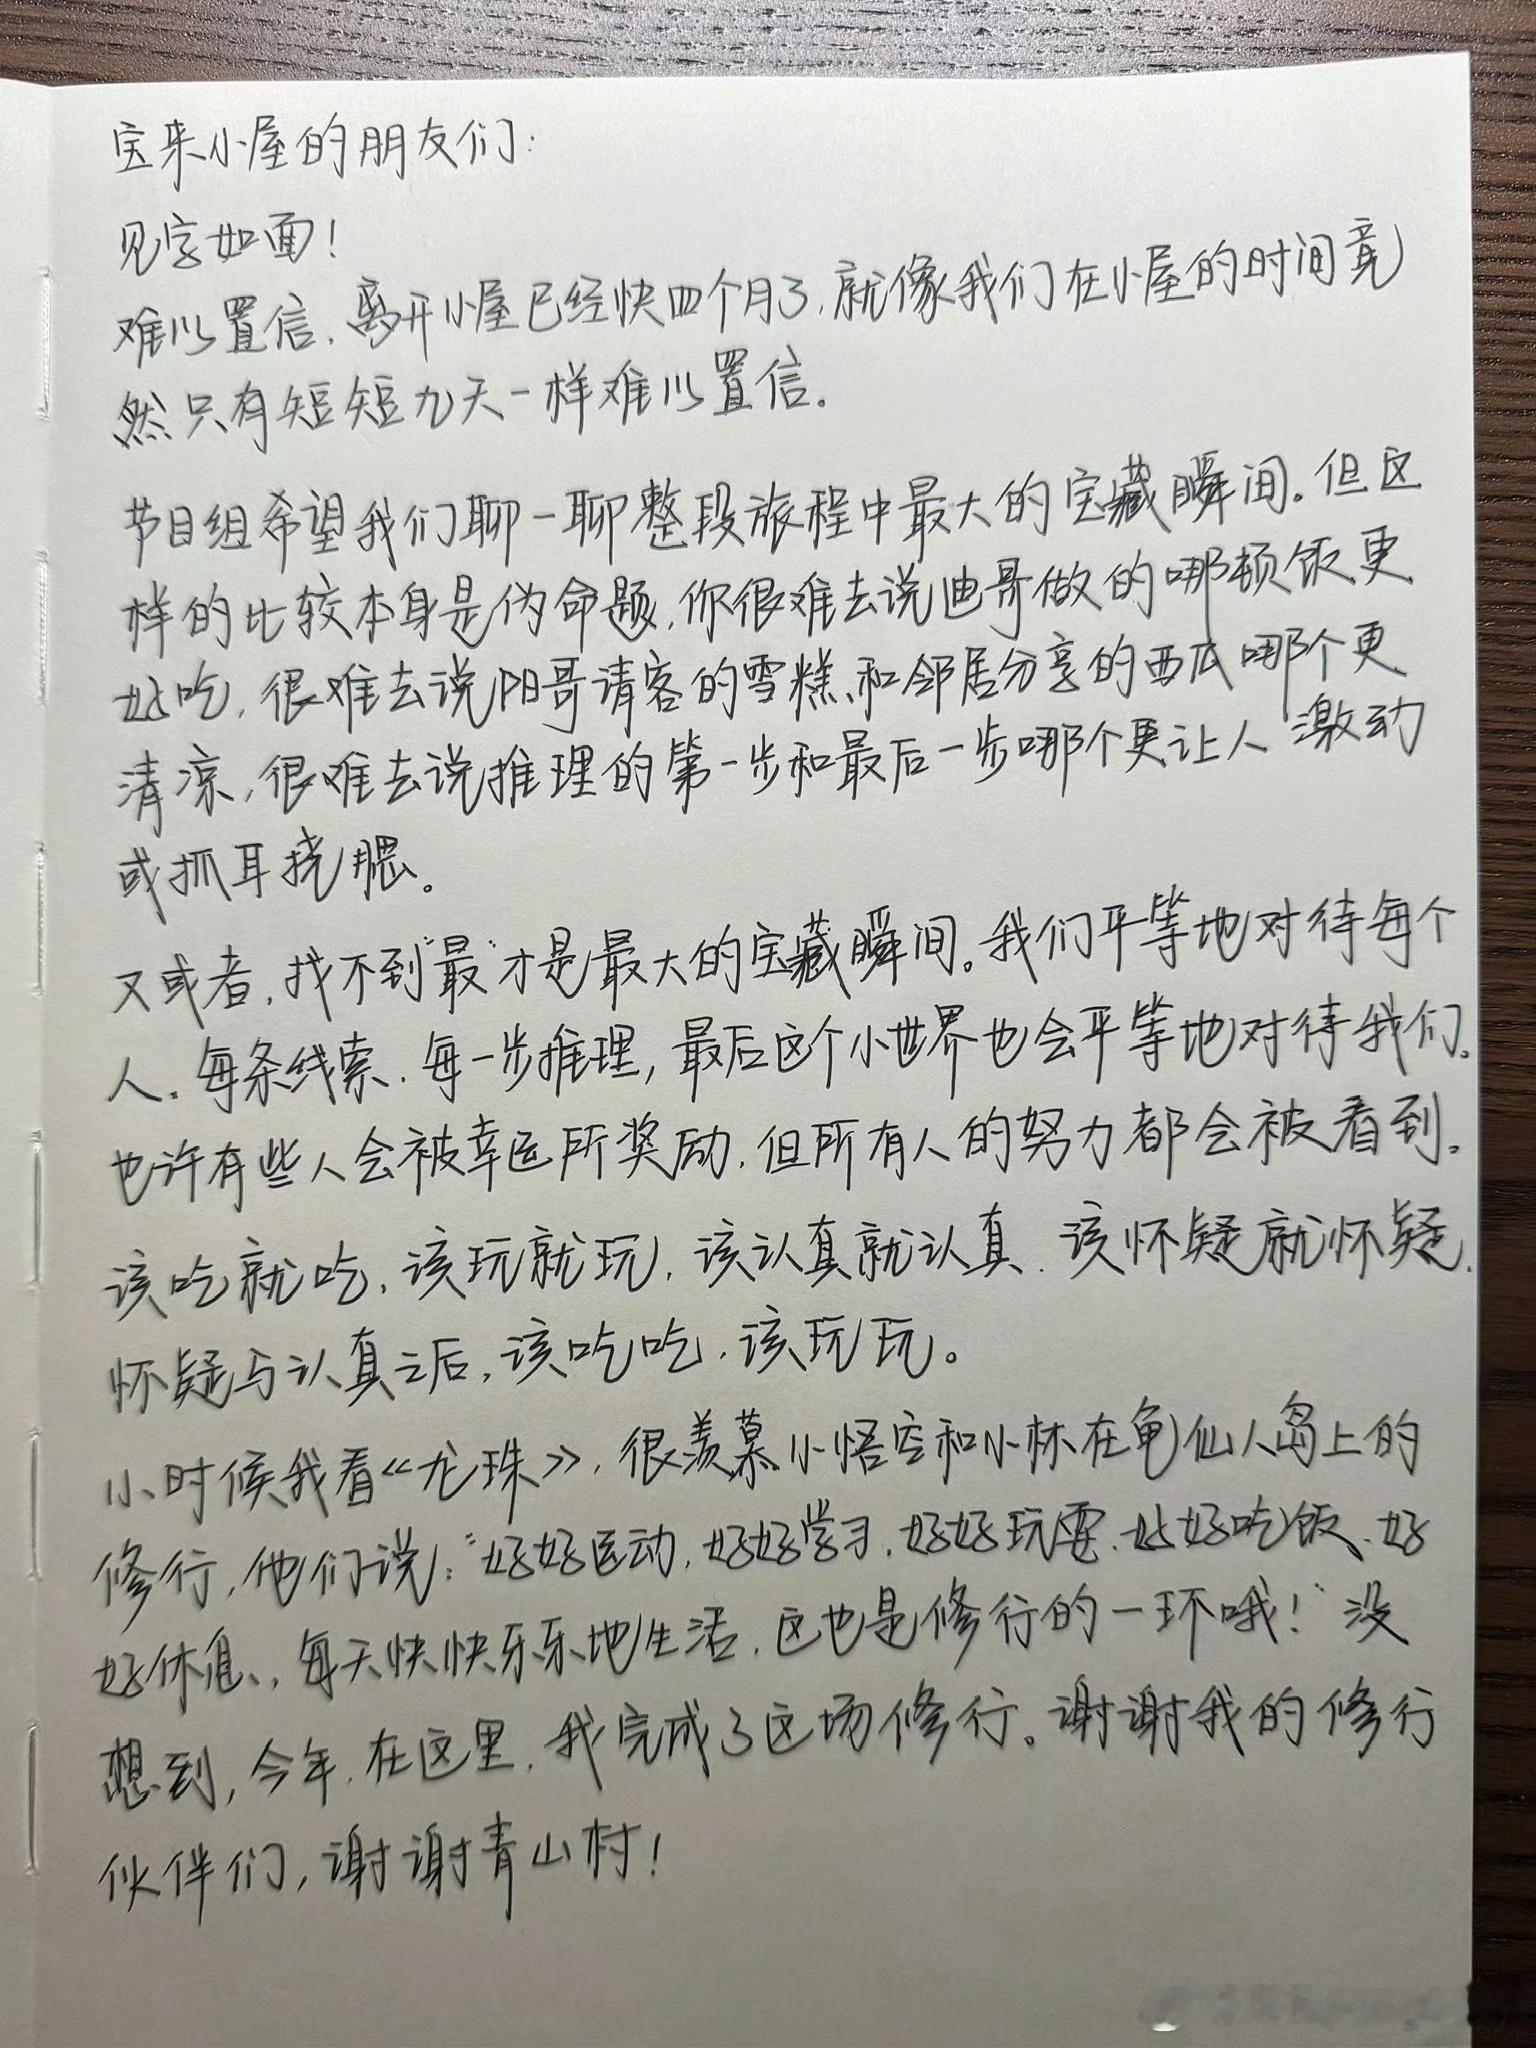 宝来小屋的朋友们：
见字如面！
难以置信，离开小屋已经快四个月了，就像我们在小屋的时间竟
然只有短短九天一样难以置信。
节目组希望我们聊一聊整段旅程中最大的宝藏瞬间。但这
样的比较本身是伪命题，你很难去说迪哥做的哪顿饭更
好吃，很难去说阳哥请客的雪糕和邻居分享的西瓜哪个更
清凉，很难去说推理的第一步和最后一步哪个更让人激动
或抓耳挠腮。
又或者，找不到“最”才是最大的宝藏瞬间。我们平等地对待每个
人、每条线索、每一步推理，最后这个小世界也会平等地对待我们。
也许有些人会被幸运所奖励，但所有人的努力都会被看到。
该吃就吃，该玩就玩，该认真就认真，该怀疑就怀疑，
怀疑与认真之后，该吃吃，该玩玩。
小时候我看《龙珠》，很羡慕小悟空和小林在龟仙人岛上的
修行，他们说：“好好运动，好好学习，好好玩耍、好好吃饭、好
好休息，每天快快乐乐地生活，这也是修行的一环哦！”没
想到，今年，在这里，我完成了这场修行。谢谢我的修行
伙伴们，谢谢青山村！